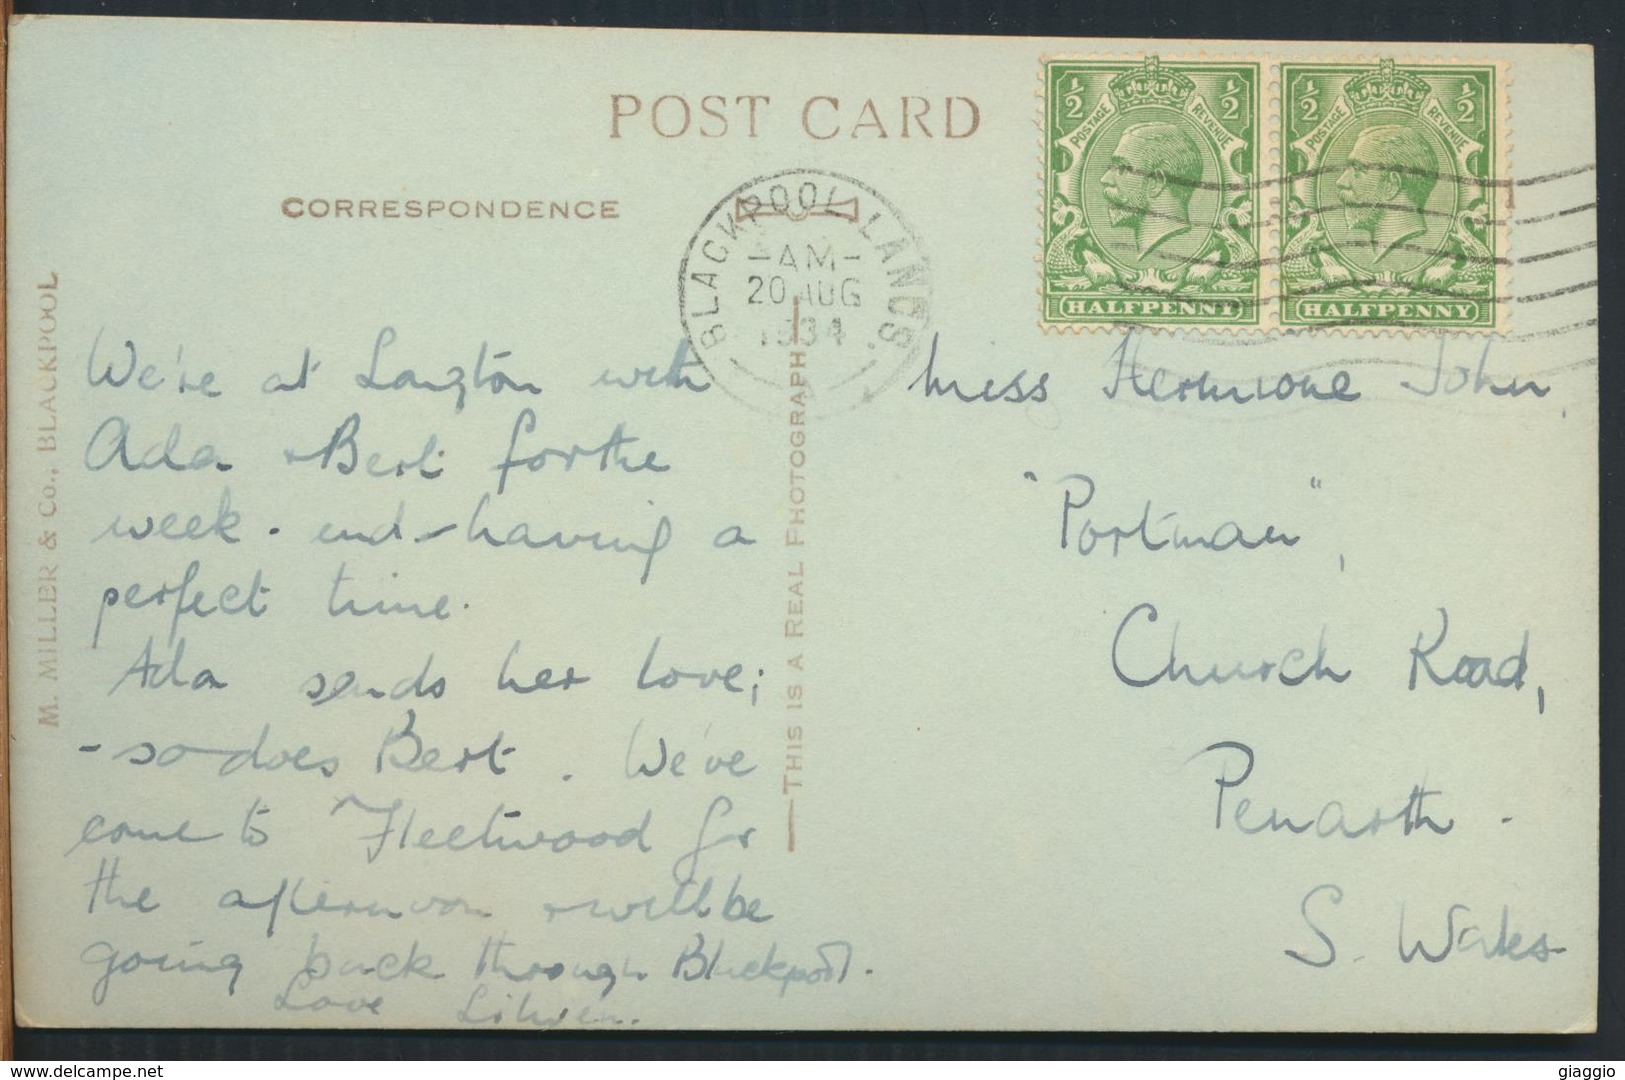 POST CARD
CORRESPONDENCE
½ ½
POSTAGE REVENUE
HALFPENNY
½ ½
POSTAGE REVENUE
HALFPENNY
BLACKPOOL LANCS.
-AM-
20 AUG
1934
M. MILLER & Co., BLACKPOOL
THIS IS A REAL PHOTOGRAPH
We're at Langton with
Ada + Bert for the
week-end - having a
perfect time.
Ada sends her love;
- so does Bert. We've
come to Fleetwood for
the afternoon + will be
going back through Blackpool.
Love
Miss Hermione John,
"Portman",
Church Road,
Penarth.
S. Wales
giaggio